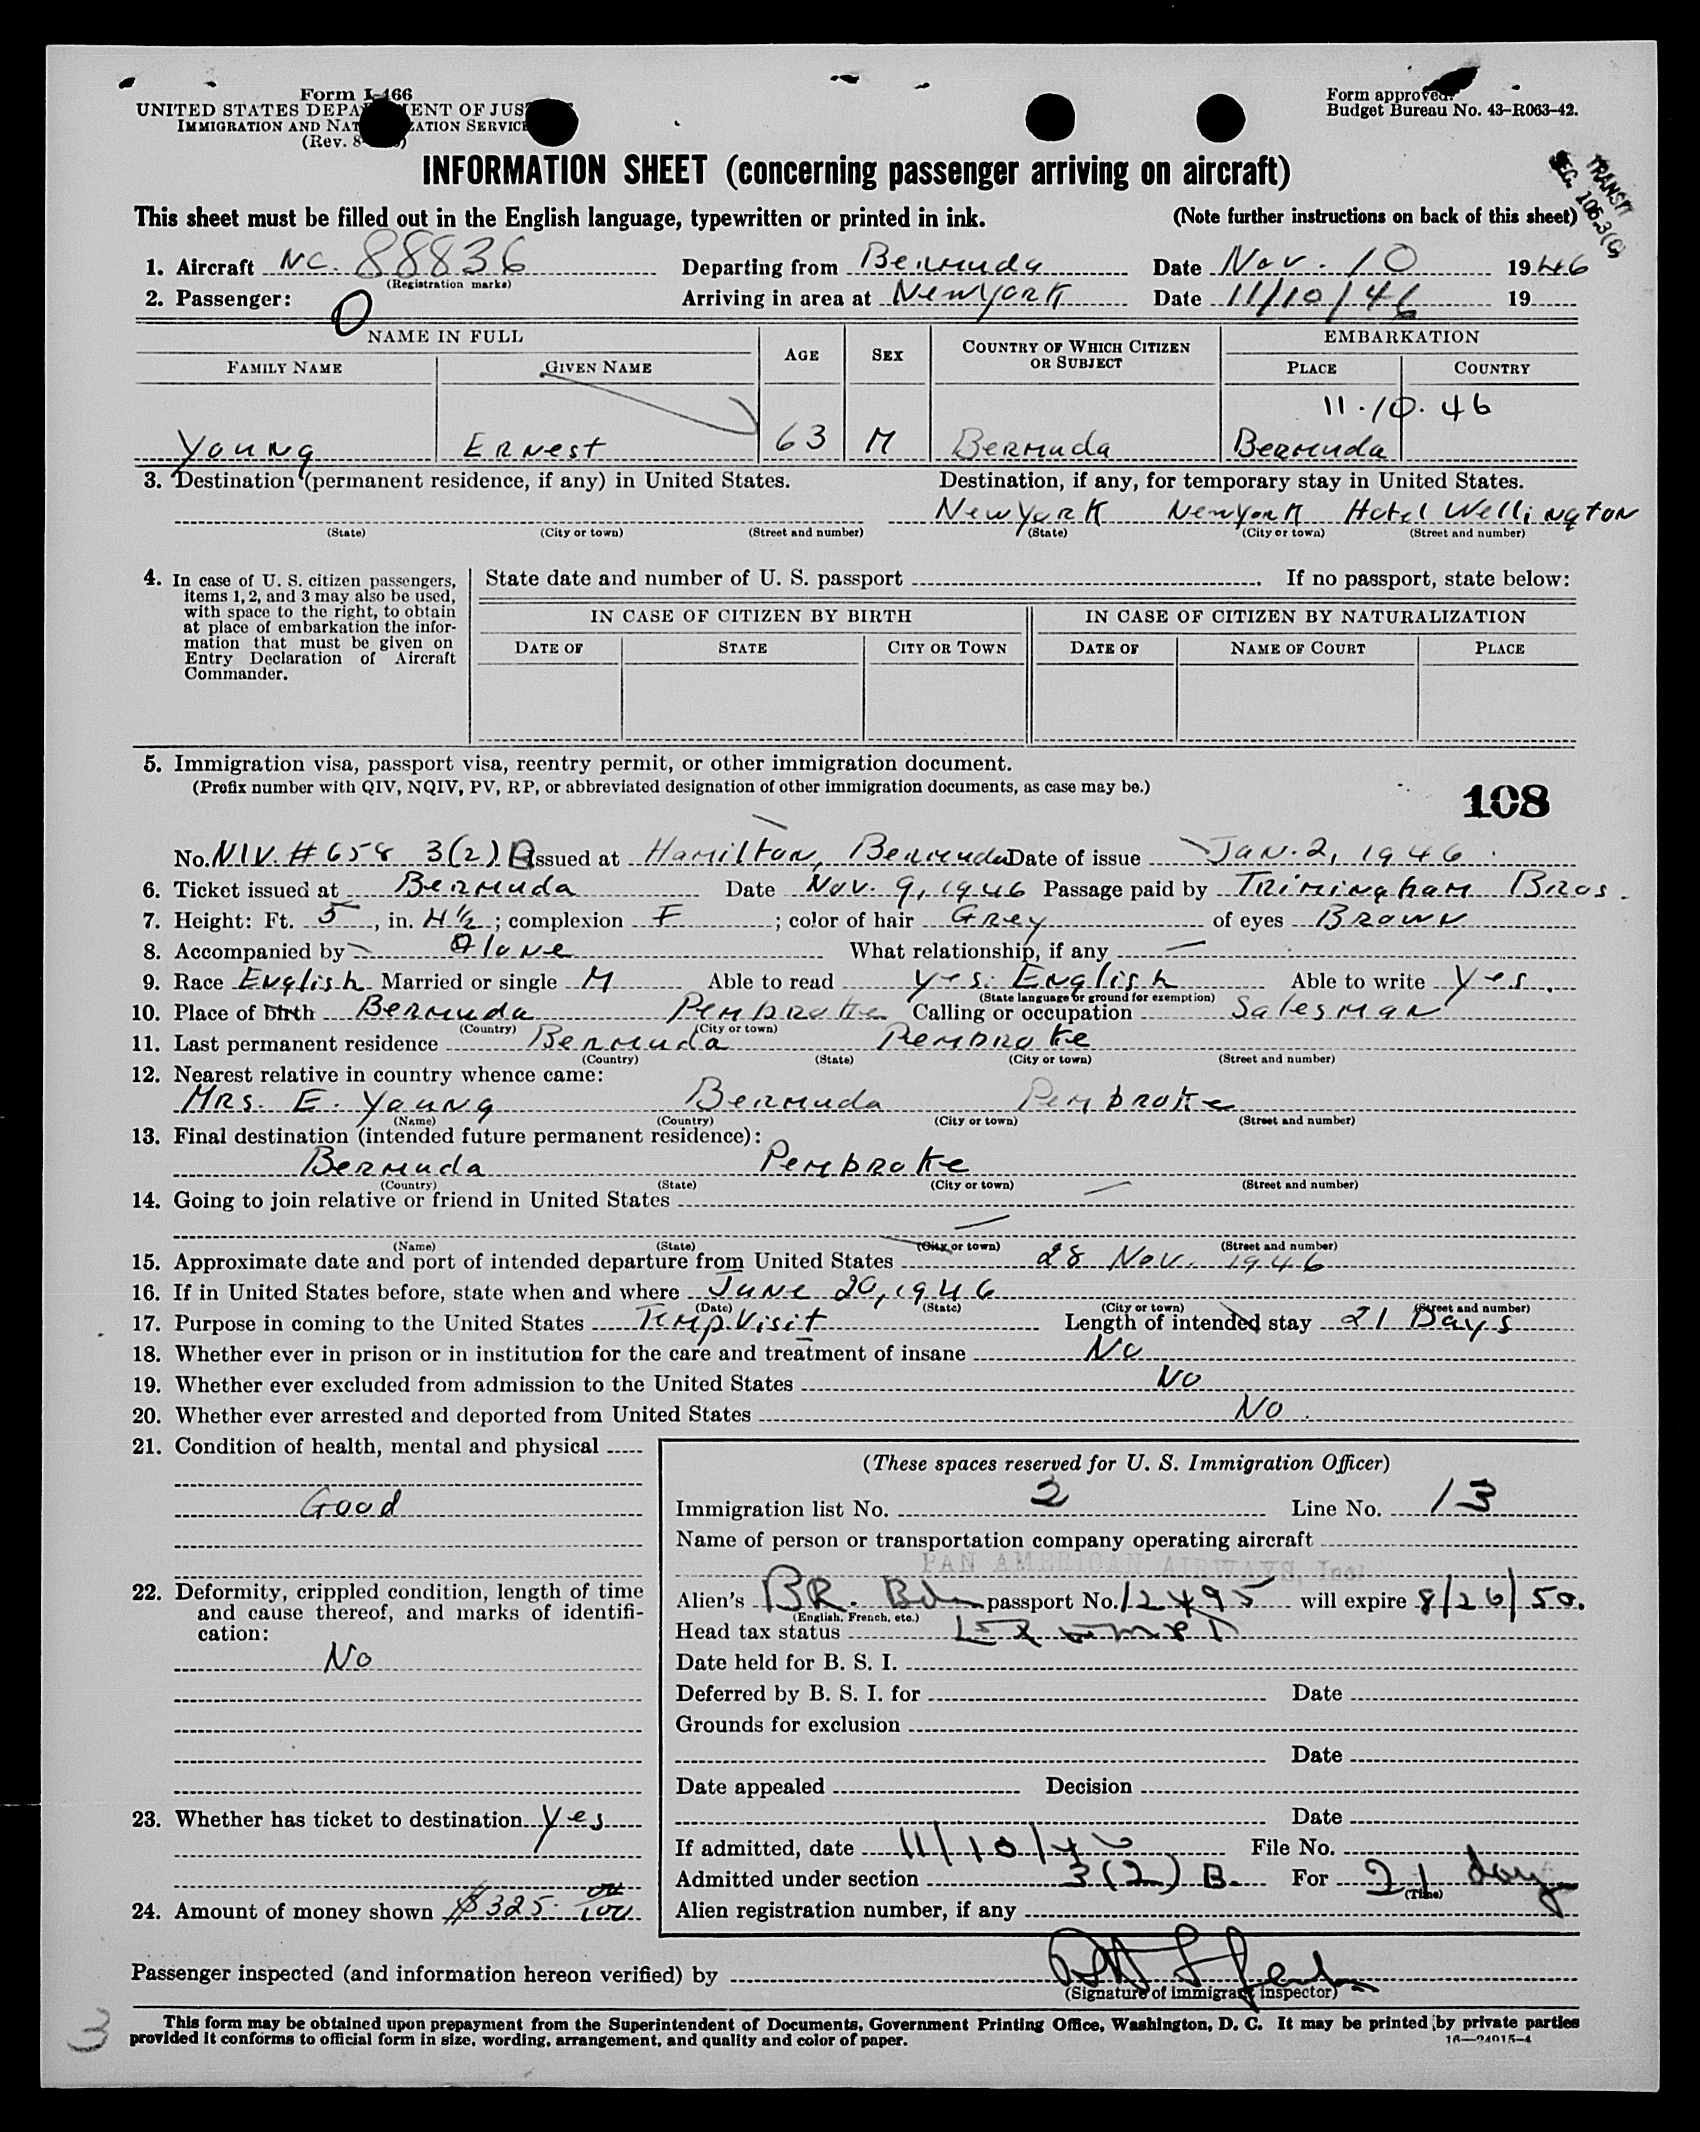 Form I-466
UNITED STATES DEPARTMENT OF JUSTICE
IMMIGRATION AND NATURALIZATION SERVICE
(Rev. 8
Form approved.
Budget Bureau No. 43–R063–42.
INFORMATION SHEET (concerning passenger arriving on aircraft)
TRANSIT
SEC. 105.3(c)
This sheet must be filled out in the English language, typewritten or printed in ink. (Note further instructions on back of this sheet)
1. Aircraft NC. 88836 Departing from Bermuda Date Nov. 10 1946
(Registration marks)
2. Passenger: Arriving in area at New York Date 11/10/46 19
NAME IN FULL AGE SEX COUNTRY OF WHICH CITIZEN OR SUBJECT EMBARKATION
FAMILY NAME GIVEN NAME PLACE COUNTRY
11.10.46
Young Ernest 63 M Bermuda Bermuda
3. Destination (permanent residence, if any) in United States. Destination, if any, for temporary stay in United States.
New York New York Hotel Wellington
(State) (City or town) (Street and number) (State) (City or town) (Street and number)
4. In case of U. S. citizen passengers, items 1, 2, and 3 may also be used, with space to the right, to obtain at place of embarkation the information that must be given on Entry Declaration of Aircraft Commander.
State date and number of U. S. passport If no passport, state below:
IN CASE OF CITIZEN BY BIRTH IN CASE OF CITIZEN BY NATURALIZATION
DATE OF STATE CITY OR TOWN DATE OF NAME OF COURT PLACE
5. Immigration visa, passport visa, reentry permit, or other immigration document.
(Prefix number with QIV, NQIV, PV, RP, or abbreviated designation of other immigration documents, as case may be.)
108
No. NIV. # 658 3(2) B Issued at Hamilton, Bermuda Date of issue Jan. 2, 1946
6. Ticket issued at Bermuda Date Nov. 9, 1946 Passage paid by Trimingham Bros.
7. Height: Ft. 5, in. 4 1/2; complexion F; color of hair Grey of eyes Brown
8. Accompanied by Alone What relationship, if any —
9. Race English Married or single M Able to read yes. English Able to write Yes.
(State language or ground for exemption)
10. Place of birth Bermuda Pembroke Calling or occupation Salesman
(Country) (City or town)
11. Last permanent residence Bermuda Pembroke
(Country) (State) (City or town) (Street and number)
12. Nearest relative in country whence came:
Mrs. E. Young Bermuda Pembroke
(Name) (Country) (City or town) (Street and number)
13. Final destination (intended future permanent residence):
Bermuda Pembroke
(Country) (State) (City or town) (Street and number)
14. Going to join relative or friend in United States —
—
(Name) (State) (City or town) (Street and number)
15. Approximate date and port of intended departure from United States 28 Nov. 1946
16. If in United States before, state when and where June 20, 1946
(Date) (State) (City or town) (Street and number)
17. Purpose in coming to the United States Temp. Visit Length of intended stay 21 Days
18. Whether ever in prison or in institution for the care and treatment of insane No
19. Whether ever excluded from admission to the United States No
20. Whether ever arrested and deported from United States No.
21. Condition of health, mental and physical
Good
22. Deformity, crippled condition, length of time and cause thereof, and marks of identification:
No
23. Whether has ticket to destination Yes
24. Amount of money shown $325. 00/100
(These spaces reserved for U. S. Immigration Officer)
Immigration list No. 2 Line No. 13
Name of person or transportation company operating aircraft
PAN AMERICAN AIRWAYS, Inc.
Alien's BR. Bda passport No. 12495 will expire 8/26/50.
(English, French, etc.)
Head tax status Exempt
Date held for B. S. I.
Deferred by B. S. I. for Date
Grounds for exclusion
Date
Date appealed Decision
Date
If admitted, date 11/10/46 File No.
Admitted under section 3(2) B. For 21 days
(Time)
Alien registration number, if any
Passenger inspected (and information hereon verified) by
(Signature of immigrant inspector)
3
This form may be obtained upon prepayment from the Superintendent of Documents, Government Printing Office, Washington, D. C. It may be printed by private parties
provided it conforms to official form in size, wording, arrangement, and quality and color of paper.
16—24015-4